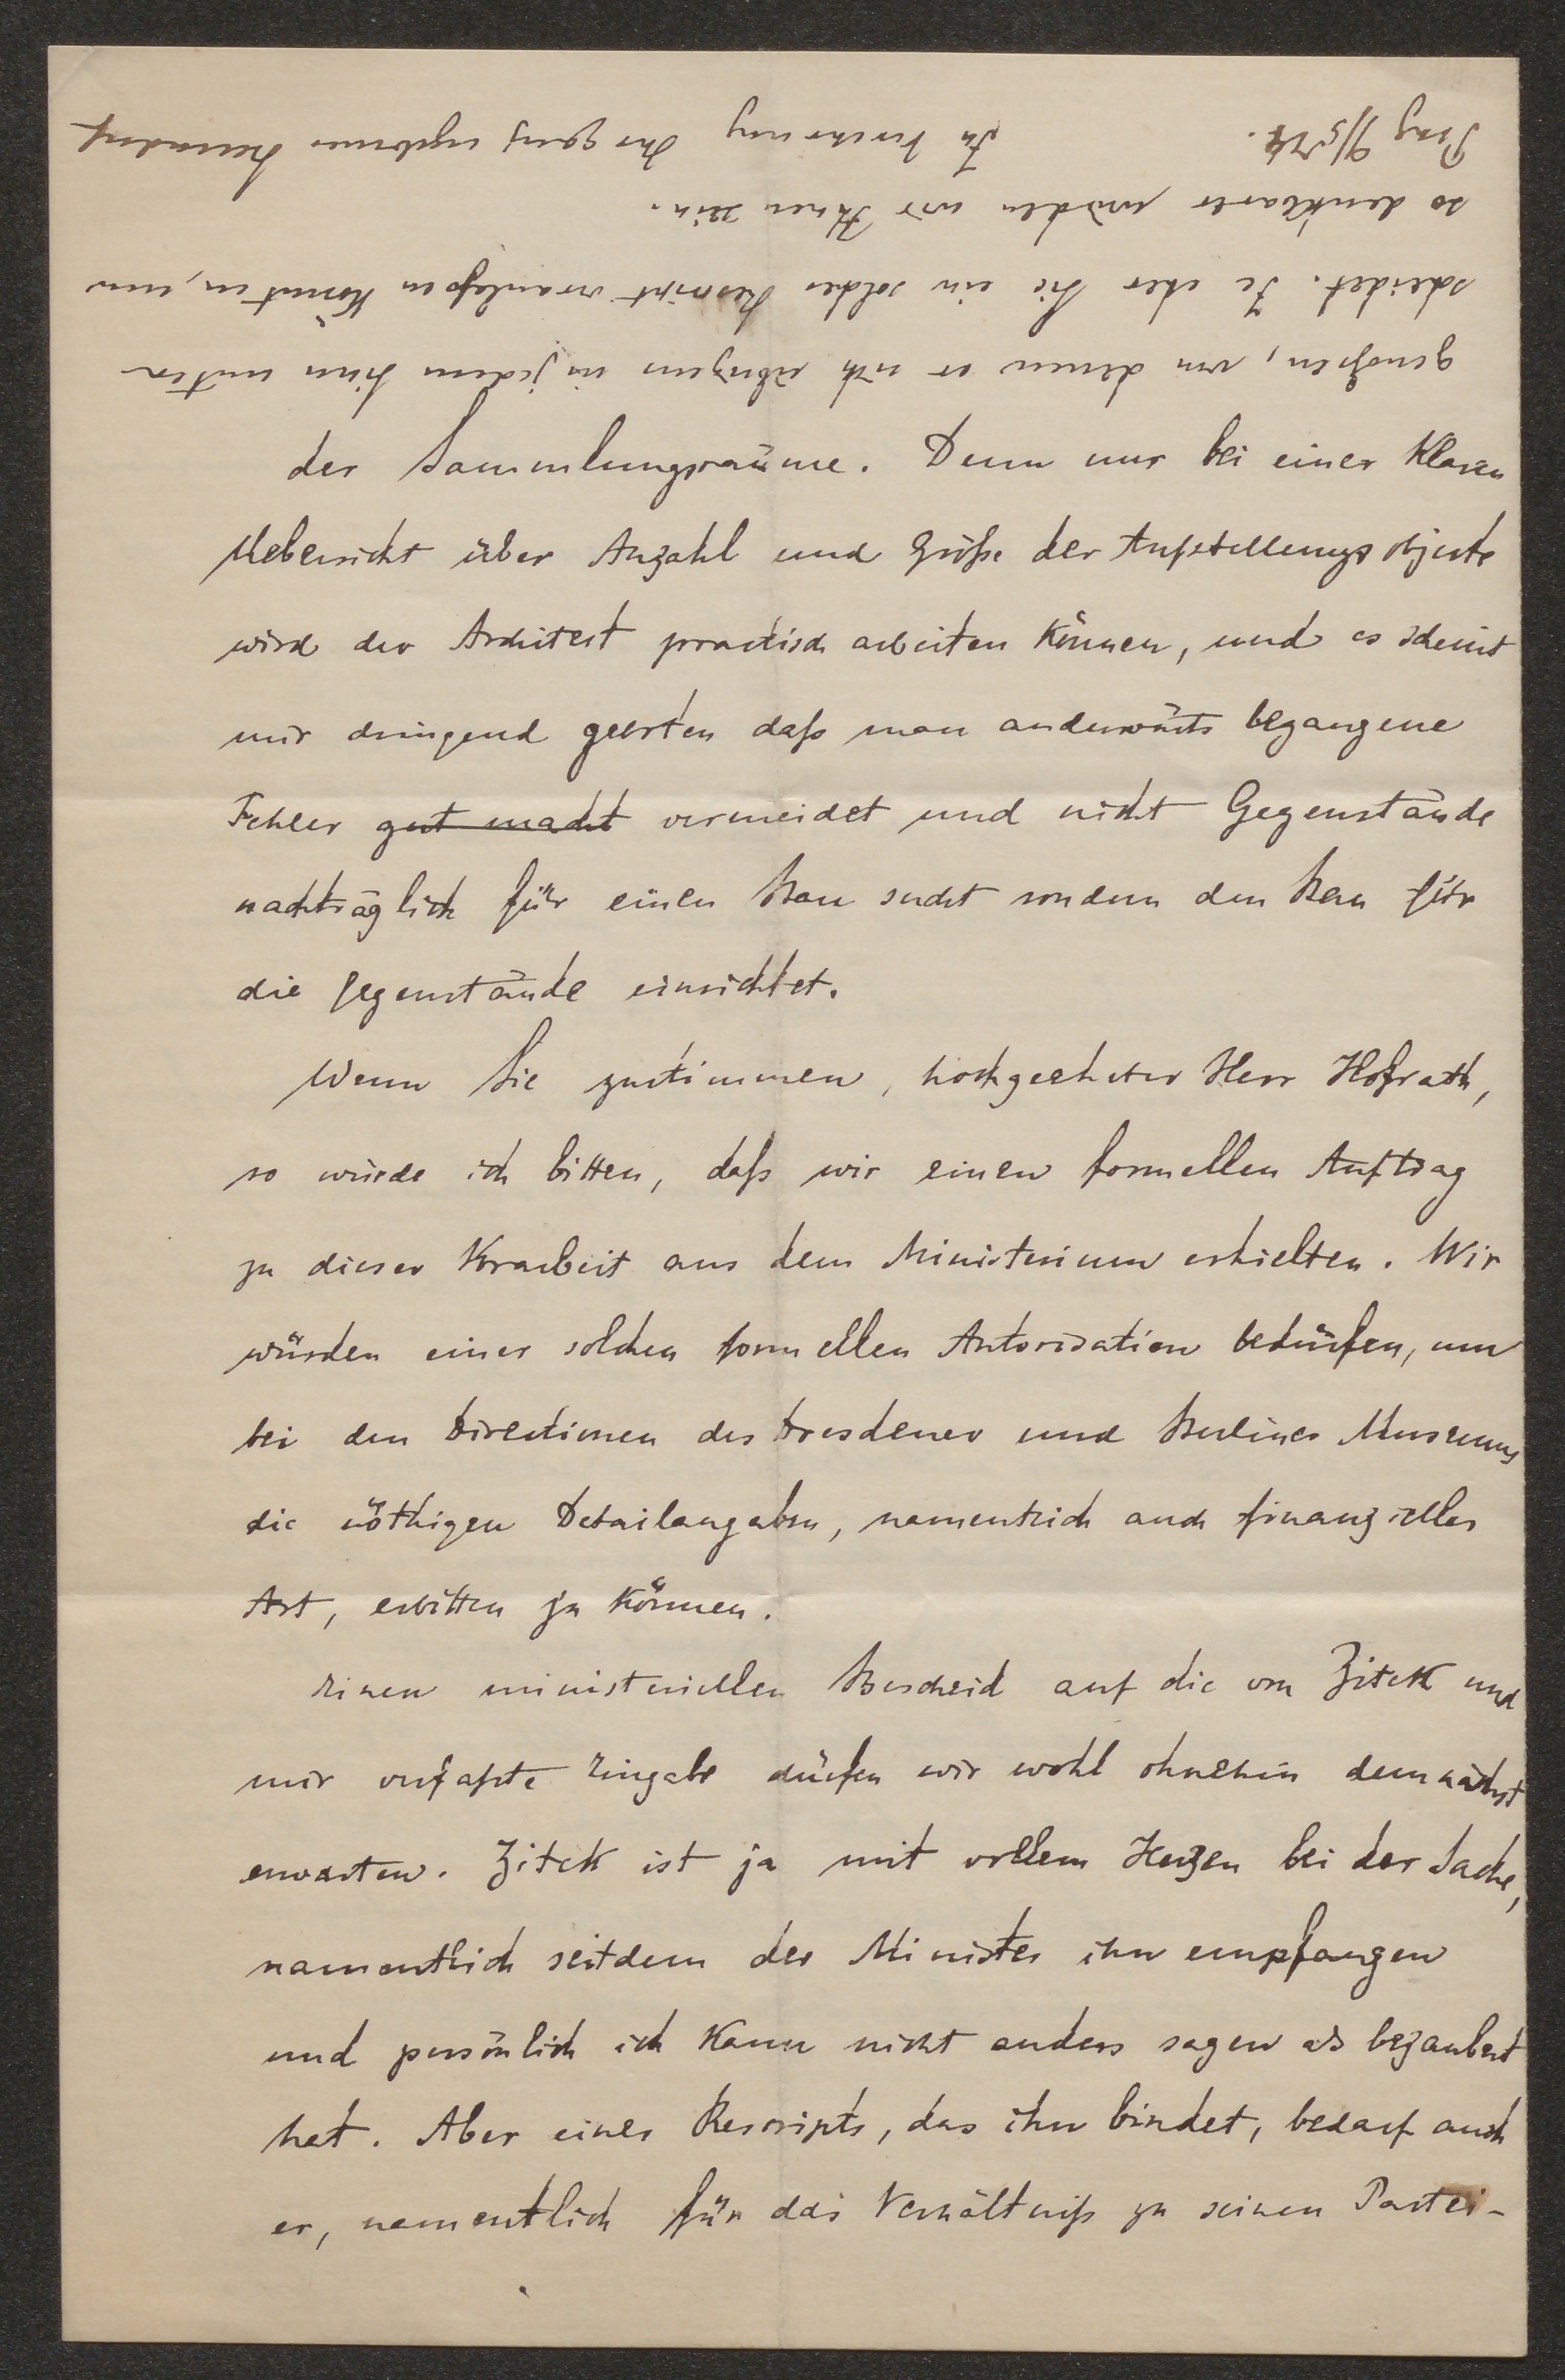 der Sammlungsräume. Denn nur bei einer klaren
Uebersicht über Anzahl und Größe der Aufstellungsobjecte
wird der Architect practisch arbeiten können, und es scheint
mir dringend geboten daß man anderwärts begangene
Fehler gut macht vermeidet und nicht Gegenstände
nachträglich für einen Bau sucht sondern den Bau für
die Gegenstände einrichtet.
Wenn Sie zustimmen, hochgeehrter Herr Hofrath,
so würde ich bitten, daß wir einen formellen Auftrag
zu dieser Vorarbeit aus dem Ministerium erhielten. Wir
würden einer solchen formellen Autorisation bedürfen, um
bei den Directionen des Dresdener und Berliner Museums
die nöthigen Detailangaben, namentlich auch finanzieller
Art, erbitten zu können.
Einen ministeriellen Bescheid auf die von Zitek und
mir verfaßte Eingabe dürfen wir wohl ohnehin demnächst
erwarten. Zitek ist ja mit vollem Herzen bei der Sache,
namentlich seitdem der Minister ihn empfangen
und persönlich ich kann nicht anders sagen als bezaubert
hat. Aber eines Rescripts, das ihn bindet, bedarf auch
er, namentlich für das Verhältniß zu seinen Partei-
genoßen, von denen er sich übrigens in jedem Sinn unter
scheidet. Je eher Sie ein solches Rescript veranlaßen könnten, um
so dankbarer würden wir Ihnen sein.
In Verehrung Ihr ganz ergebener Benndorf
Prag 9/5 74.